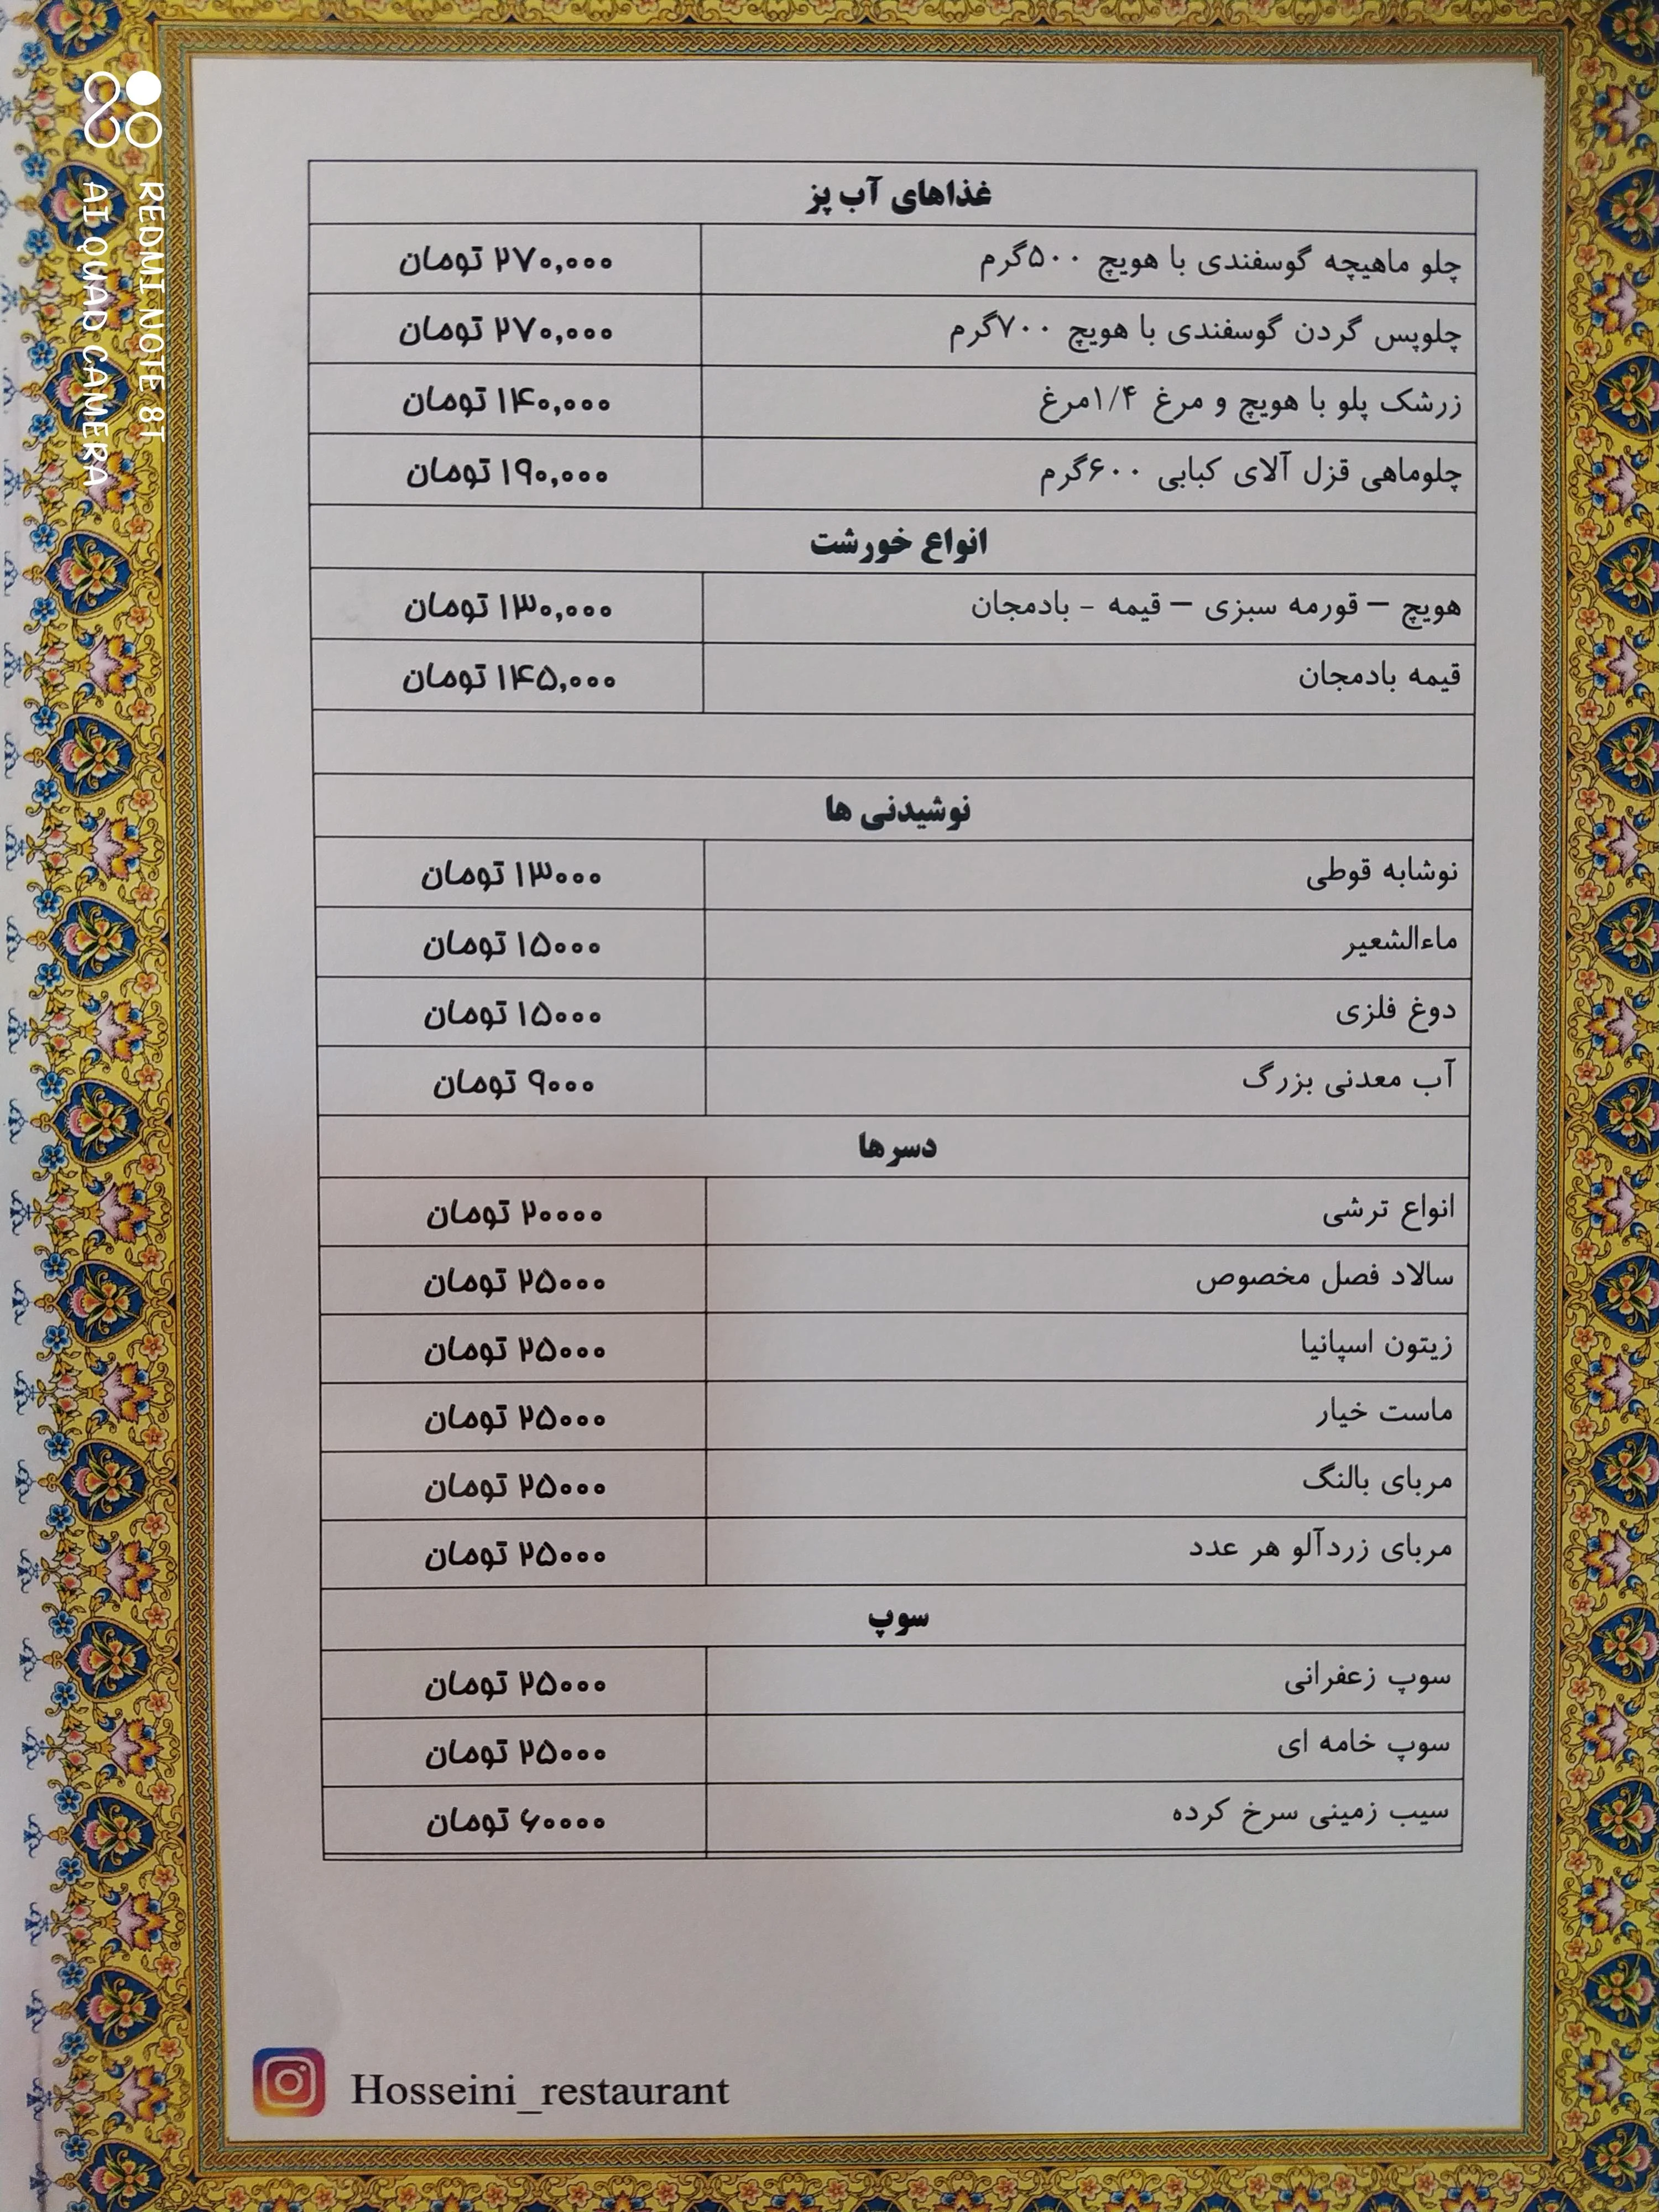 غذاهای آب پز
چلو ماهیچه گوسفندی با هویچ ۵۰۰گرم ۲۷۰,۰۰۰ تومان
چلوپس گردن گوسفندی با هویچ ۷۰۰گرم ۲۷۰,۰۰۰ تومان
زرشک پلو با هویچ و مرغ ۱/۴مرغ ۱۴۰,۰۰۰ تومان
چلوماهی قزل آلای کبابی ۶۰۰گرم ۱۹۰,۰۰۰ تومان
انواع خورشت
هویچ – قورمه سبزی – قیمه - بادمجان ۱۳۰,۰۰۰ تومان
قیمه بادمجان ۱۴۵,۰۰۰ تومان
نوشیدنی ها
نوشابه قوطی ۱۳۰۰۰ تومان
ماءالشعیر ۱۵۰۰۰ تومان
دوغ فلزی ۱۵۰۰۰ تومان
آب معدنی بزرگ ۹۰۰۰ تومان
دسرها
انواع ترشی ۲۰۰۰۰ تومان
سالاد فصل مخصوص ۲۵۰۰۰ تومان
زیتون اسپانیا ۲۵۰۰۰ تومان
ماست خیار ۲۵۰۰۰ تومان
مربای بالنگ ۲۵۰۰۰ تومان
مربای زردآلو هر عدد ۲۵۰۰۰ تومان
سوپ
سوپ زعفرانی ۲۵۰۰۰ تومان
سوپ خامه ای ۲۵۰۰۰ تومان
سیب زمینی سرخ کرده ۶۰۰۰۰ تومان
Hosseini_restaurant
REDMI NOTE 8T
AI QUAD CAMERA